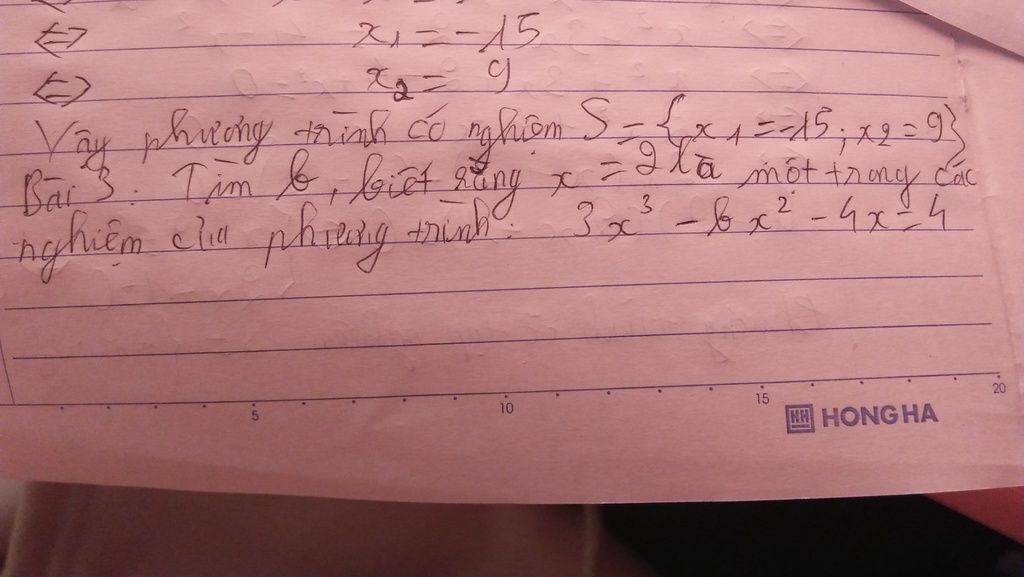 <=> x₁ = -15
<=> x₂ = 9
Vậy phương trình có nghiệm S = {x₁ = -15; x₂ = 9}
Bài 3: Tìm b, biết rằng x = 2 là một trong các
nghiệm của phương trình: 3x³ - bx² - 4x = 4
5 10 15 20
HH HONG HA